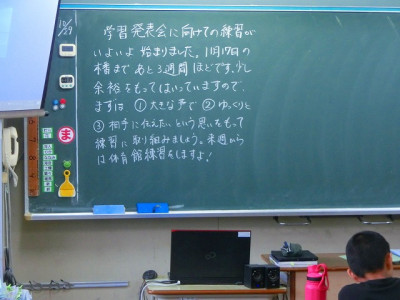 10/27
学習発表会に向けての練習が
いよいよ 始まりました。11月17日の
本番まで あと3週間 ほどです。少し
余裕をもってはいっていますので、
まずは ①大きな声で ②ゆっくりと
③相手に伝えたい という思いをもって
練習に取り組みましょう。来週から
は体育館練習をしますよ!
ま